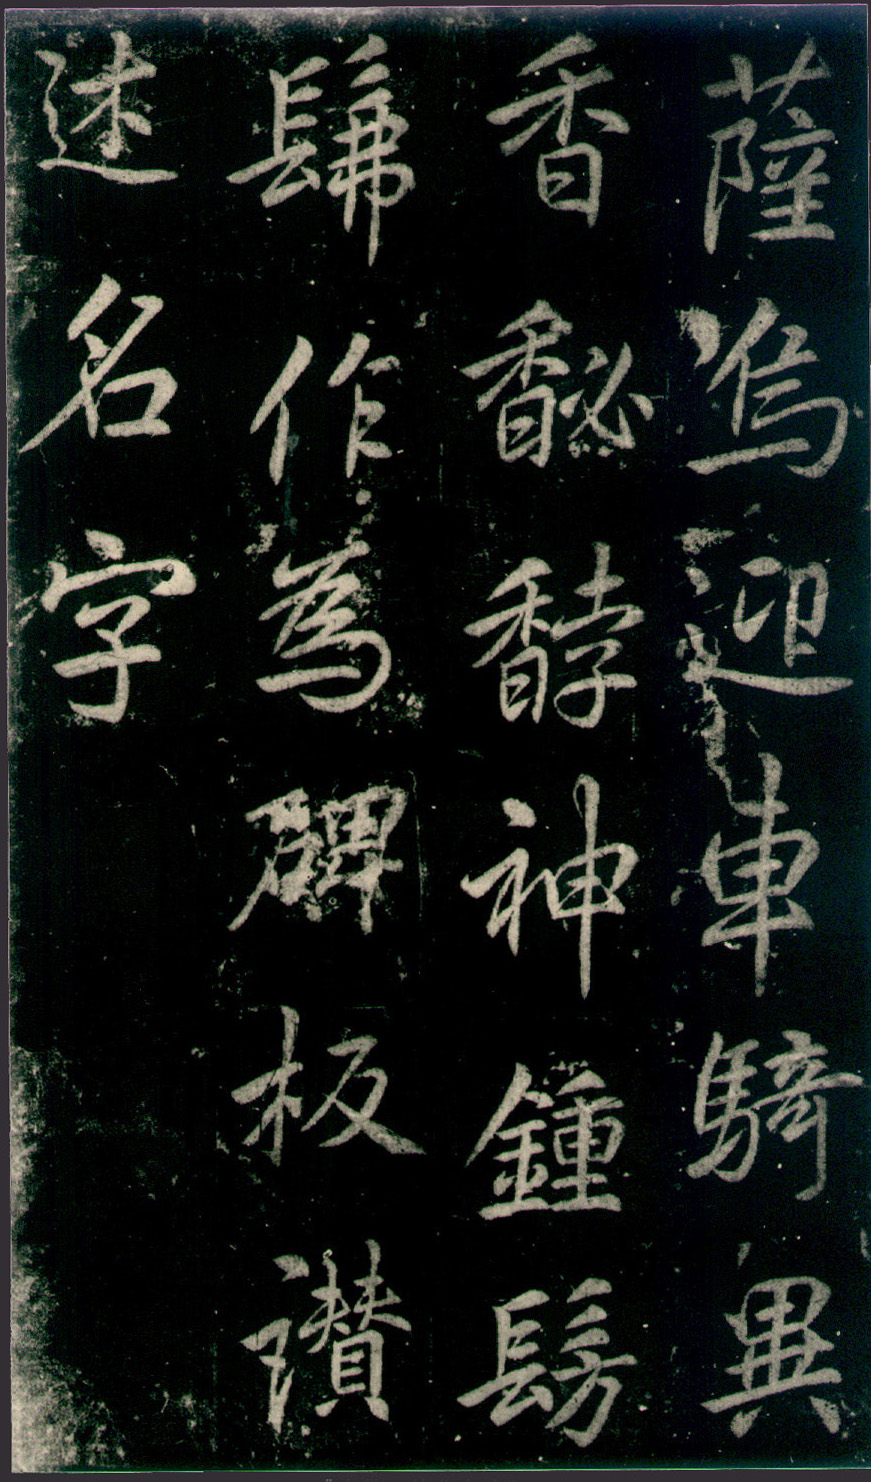 薩迎車騎異
香馝馞神鍾髣
髴作為碑板讚
述名字